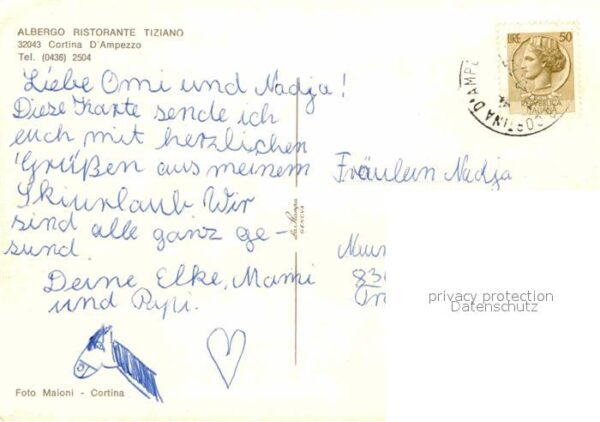 ALBERGO RISTORANTE TIZIANO
32043 Cortina D'Ampezzo
Tel. (0436) 2504
LIRE 50
CORTINA D'AMPE
Liebe Omi und Nadja!
Diese Karte sende ich
euch mit herzlichen
Grüßen aus meinem
Skiurlaub. Wir
sind alle ganz ge-
sund.
Deine Elke, Mami
und Papi.
Fräulein Nadja
830
privacy protection
Datenschutz
Foto Maioni - Cortina